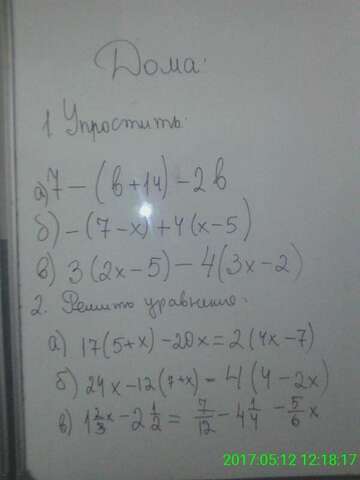 Дома:
1 Упростить:
а) 7 - (в + 14) - 2 в
б) - (7 - x) + 4 (x - 5)
в) 3 (2x - 5) - 4 (3x - 2)
2. Решить уравнение:
а) 17 (5 + x) - 20x = 2 (4x - 7)
б) 24x - 12 (7 + x) = 4 (4 - 2x)
в) 1 2/3 x - 2 1/2 = 7/12 - 4 1/4 - 5/6 x
2017.05.12 12:18:17